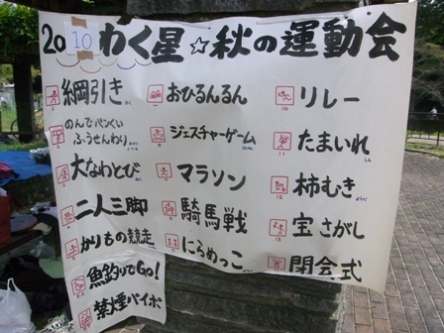 2010 わく星☆秋の運動会
綱引き
のんでベンくい
ふうせんわり
大なわとび
二人三脚
かりもの競走
魚釣りでGo!
禁煙パイポ
おひるんるん
ジェスチャーゲーム
マラソン
騎馬戦
にらめっこ
リレー
たまいれ
柿むき
宝さがし
閉会式